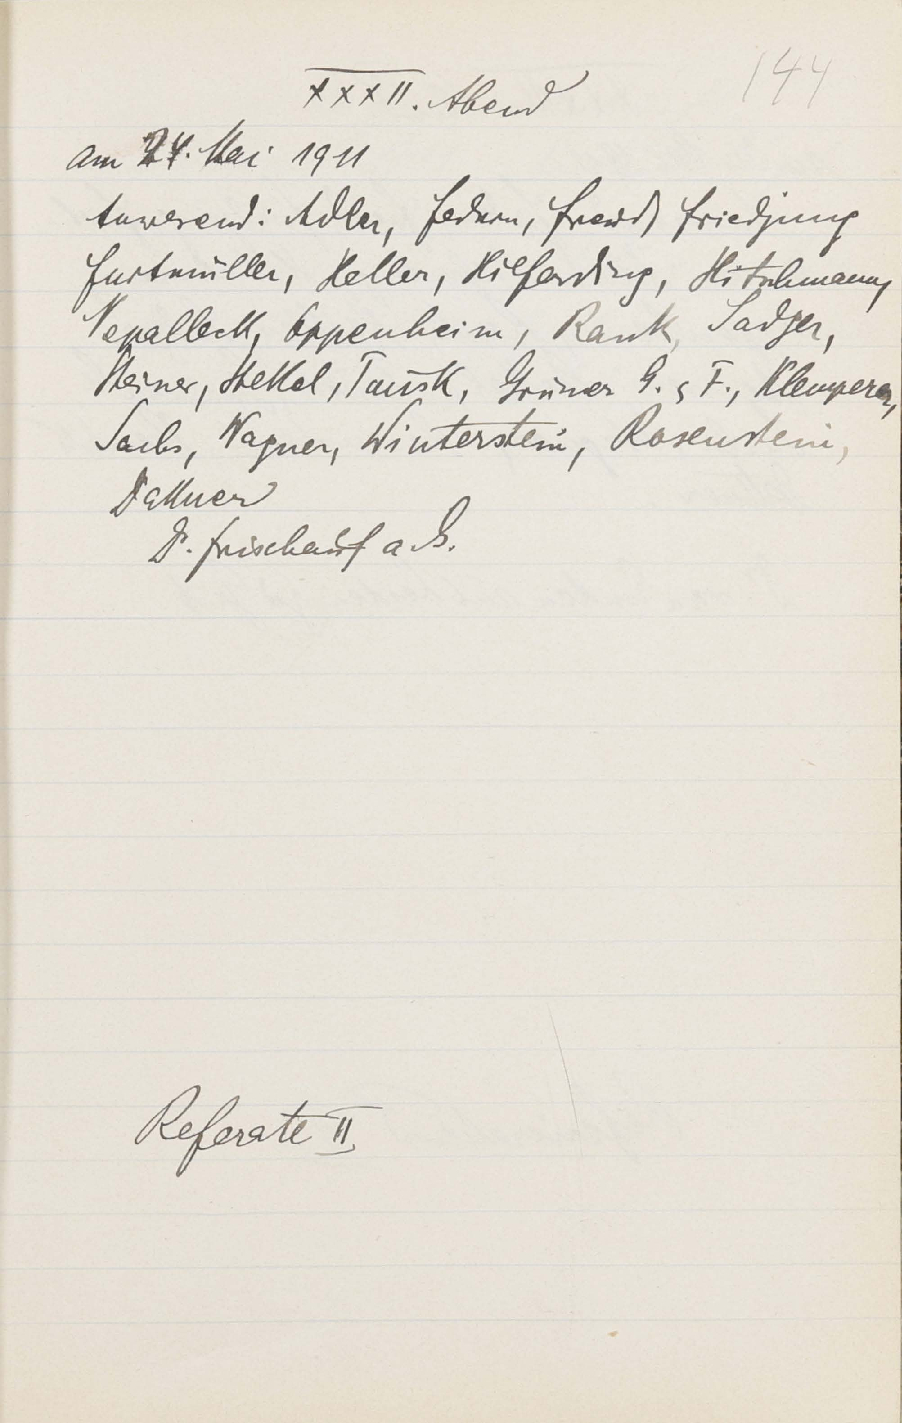 144
XXXII. Abend
am 24. Mai 1911
Anwesend: Adler, Federn, Freud, Friedjung
Furtmüller, Heller, Hilferding, Hitschmann,
Nepalleck, Oppenheim, Rank, Sadger,
Steiner, Stekel, Tausk, Grüner G. & F., Klemperer,
Sachs, Wagner, Winterstein, Rosenstein,
Dattner
Dr. Frischauf a. G.
Referate II